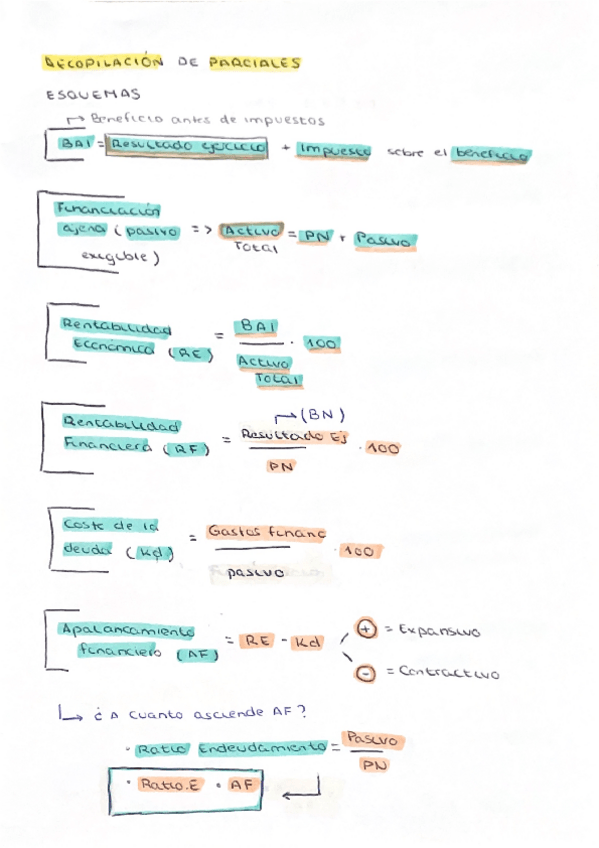 RECOPILACIÓN DE PARCIALES
ESQUEMAS
↱ Beneficio antes de impuestos
BAI = Resultado ejercicio + Impuesto sobre el beneficio
Financiación
ajena (pasivo => Activo = PN + Pasivo
Total
exigible)
Rentabilidad
Económica (RE) = BAI / Activo Total · 100
↱ (BN)
Rentabilidad
Financiera (RF) = Resultado Ej / PN · 100
Coste de la
deuda (Kd) = Gastos financ / pasivo · 100
Apalancamiento
financiero (AF) = RE - Kd
+ = Expansivo
- = Contractivo
↳ ¿A cuanto asciende AF?
· Ratio Endeudamiento = Pasivo / PN
· Ratio.E · AF